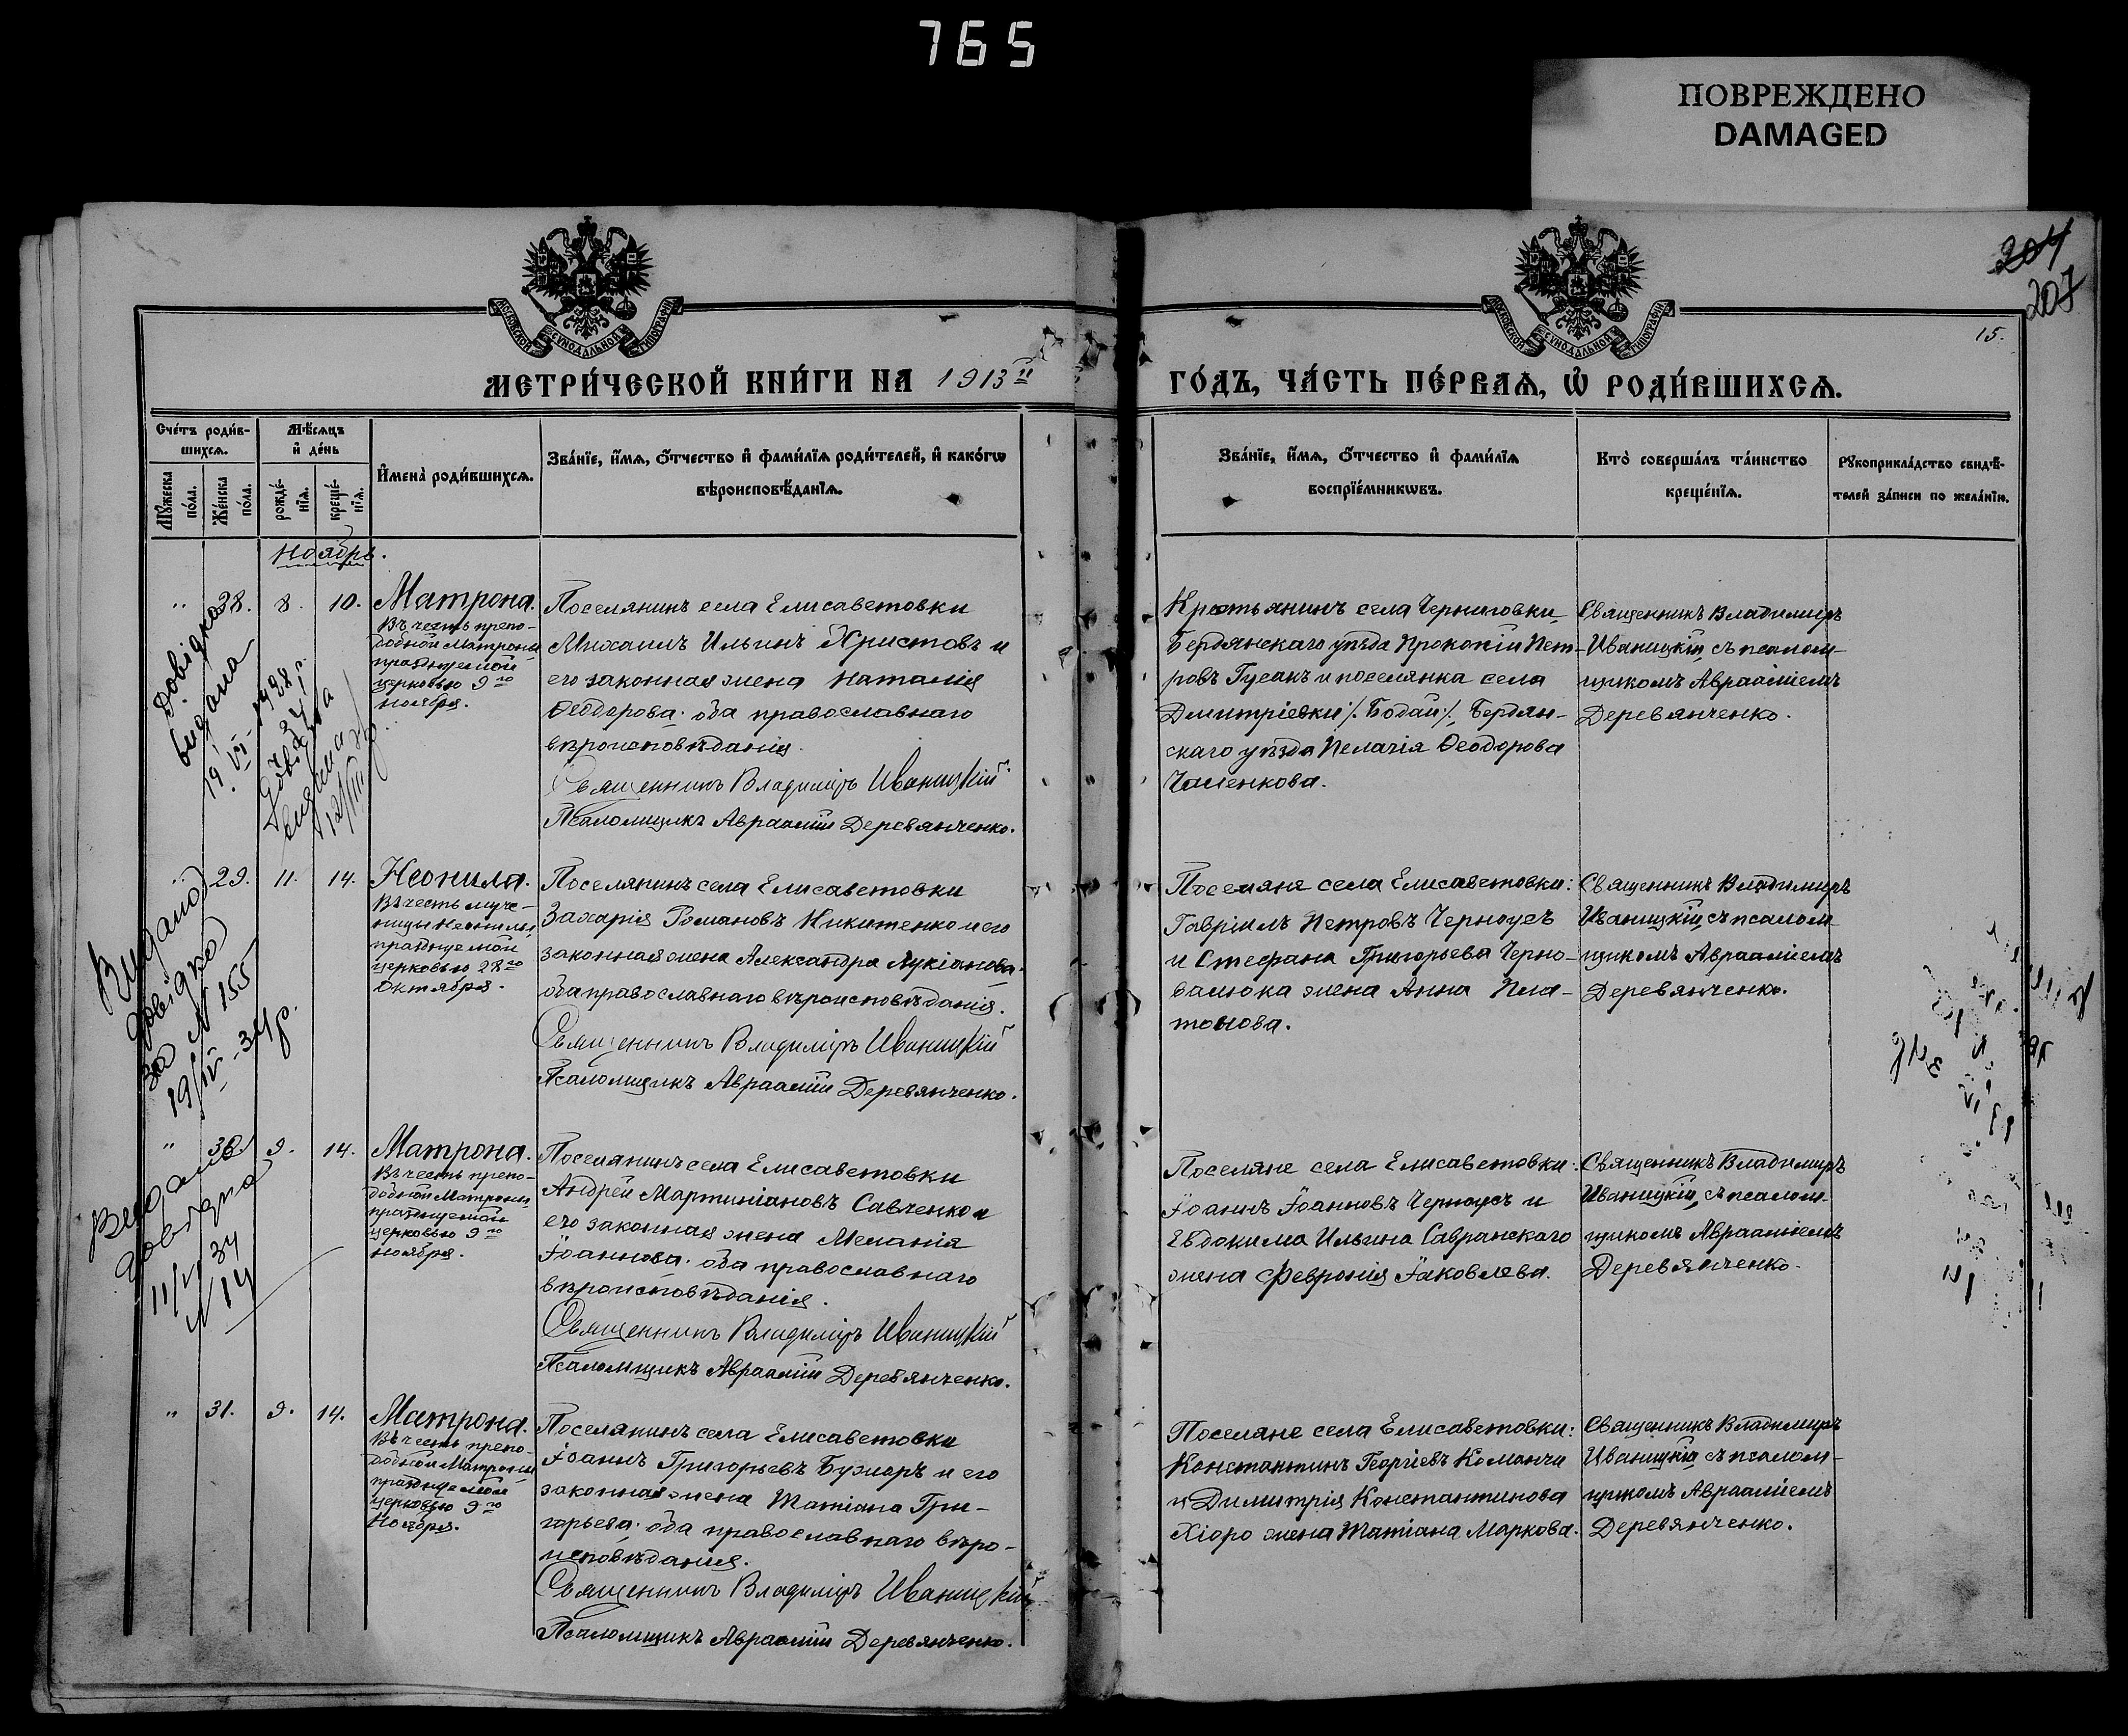 765
ПОВРЕЖДЕНО
DAMAGED
204
207
15.
МОСКОВСКОЙ СѴНОДАЛЬНОЙ ТИПОГРАФІИ
МОСКОВСКОЙ СѴНОДАЛЬНОЙ ТИПОГРАФІИ
МЕТРИ́ЧЕСКОЙ КНИ́ГИ НА 1913й
ГО́ДЪ, ЧА́СТЬ ПЕ́РВАѦ, Ѡ҆ РОДИ́ВШИХСѦ.
Сче́тъ роди́в-
шихсѧ.
Мꙋ́жеска по́ла.
Же́нска по́ла.
Мѣ́сѧцъ и҆ де́нь
рожде́-
нїѧ.
креще́-
нїѧ.
И҆мена̀ роди́вшихсѧ.
Зва́нїе, и҆́мѧ, ѻ҆́тчество и҆ фами́лїѧ роди́телей, и҆ како́гѡ
вѣроисповѣ́данїѧ.
Зва́нїе, и҆́мѧ, ѻ҆́тчество и҆ фами́лїѧ
воспрїе́мникѡвъ.
Кто̀ соверша́лъ та́инство
креще́нїѧ.
Рꙋкоприкла́дство свидѣ́-
телей за́писи по жела́нїю.
Ноябрь.
" 28. 8. 10.
Матрона.
Въ честь препо-
добной Матроны
празднуемой
церковью 9го
ноября.
Поселянинъ села Елисаветовки
Михаилъ Ильинъ Христовъ и
его законная жена Наталія
Ѳеодорова. оба православнаго
вѣроисповѣданія.
Священникъ Владиміръ Иваницкій
Псаломщикъ Авраамій Деревянченко.
Крестьянинъ села Черниговки
Бердянскаго уѣзда Прокопій Пет-
ровъ Гусакъ и поселянка села
Дмитріевки /. Бодай /. Бердян-
скаго уѣзда Пелагія Ѳеодорова
Священникъ Владимиръ
Иваницкій, съ псалом-
щикомъ Авраамiемъ
Деревянченко.
Довідка
видана
19 VI-1928 г.
" 29. 11. 14.
Неонила.
Въ честь муче-
ницы Неонилы
празднуемой
церковью 28го
Октября.
Поселянинъ села Елисаветовки
Захарія Романовъ Никитенко и его
законная жена Александра Лукіанова.
оба православнаго вѣроисповѣданія.
Священникъ Владиміръ Иваницкій
Псаломщикъ Авраамій Деревянченко.
Поселяне села Елисаветовки:
Гавріилъ Петровъ Черноусъ
и Стефана Григорьева Черно-
валюка жена Анна Пла-
тонова.
Священникъ Владимиръ
Иваницкій, съ псалом-
щикомъ Авраамiемъ
Деревянченко.
Видано
довідка
за N 155
19/IV-34р.
" 30. 9. 14.
Матрона.
Въ честь препо-
добной Матроны,
празднуемой
церковью 9го
ноября.
Поселянинъ села Елисаветовки
Андрей Мартиніановъ Савченко и
его законная жена Меланія
Іоаннова. оба православнаго
вѣроисповѣданія.
Священникъ Владиміръ Иваницкій
Псаломщикъ Авраамій Деревянченко.
Поселяне села Елисаветовки:
Іоаннъ Іоанновъ Черноусъ и
Евдокима Ильина Савранскаго
жена Февронія Іаковлева.
Священникъ Владимиръ
Иваницкій, съ псалом-
щикомъ Авраамiемъ
Деревянченко.
Видано
довідка
11/V 34
N 14
" 31. 9. 14.
Матрона.
Въ честь препо-
добной Матроны
празднуемой
церковью 9го
Ноября.
Поселянинъ села Елисаветовки
Іоаннъ Григорьевъ Бужоръ и его
законная жена Татіана Гри-
горьева. оба православнаго вѣро-
исповѣданія.
Священникъ Владиміръ Иваницкій
Псаломщикъ Авраамій Деревянченко.
Поселяне села Елисаветовки:
Константинъ Георгіевъ Команчи
и Димитрія Константинова
Хіоро жена Татіана Маркова.
Священникъ Владимиръ
Иваницкій съ псалом-
щикомъ Авраамiемъ
Деревянченко.